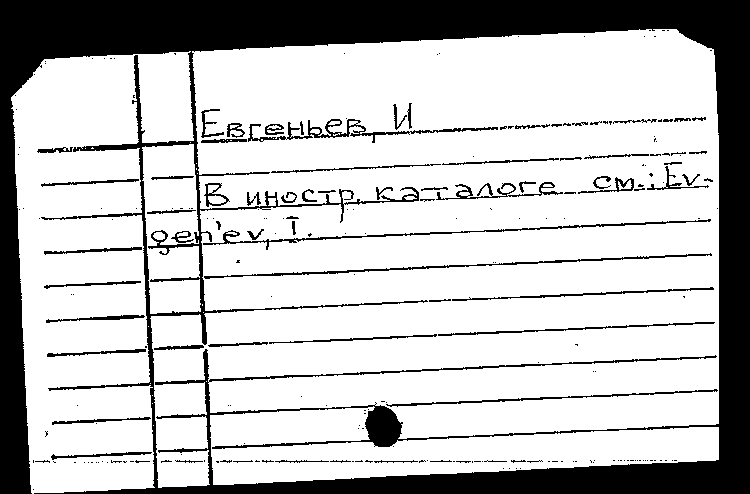 Евгеньев, И
В иностр. каталоге см.: Ev-
gen'ev, I.